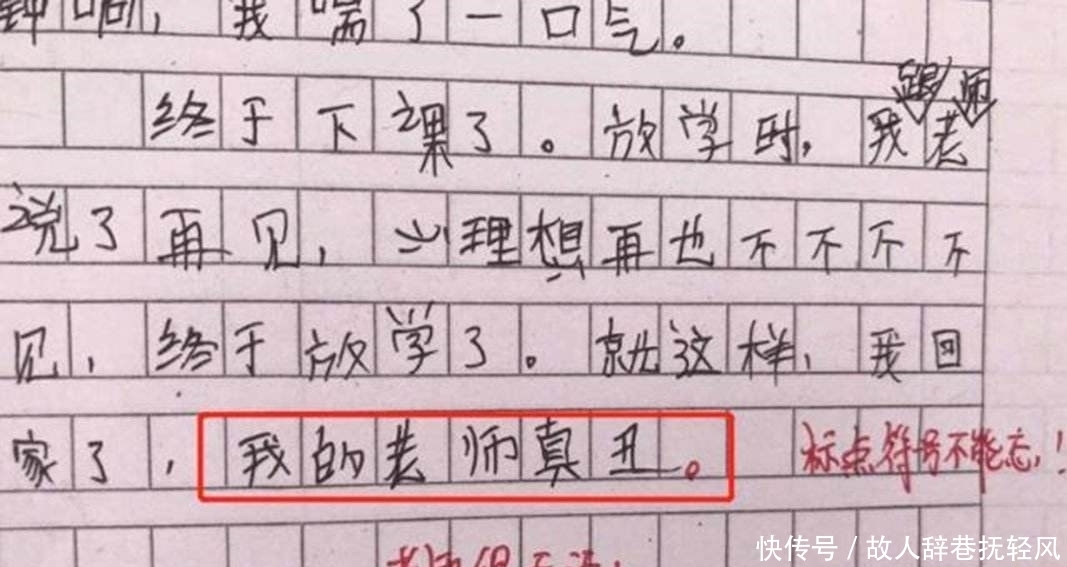 钟响，我喘了一口气。
跟 师
终于下课了。放学时，我老
说了再见，心理想再也不不不不
见，终于放学了。就这样，我回
家了，我的老师真丑。 标点符号不能忘！
快传号 / 故人辞巷抚轻风